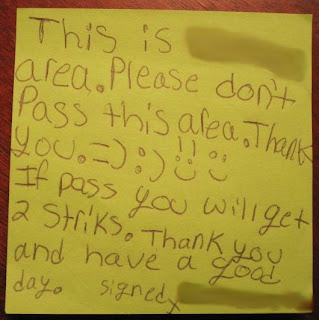 This is
area. Please don't
Pass this area. Thank
you. =) :) !! ü
If pass you will get
2 Striks. Thank you
and have a good
day. signed x